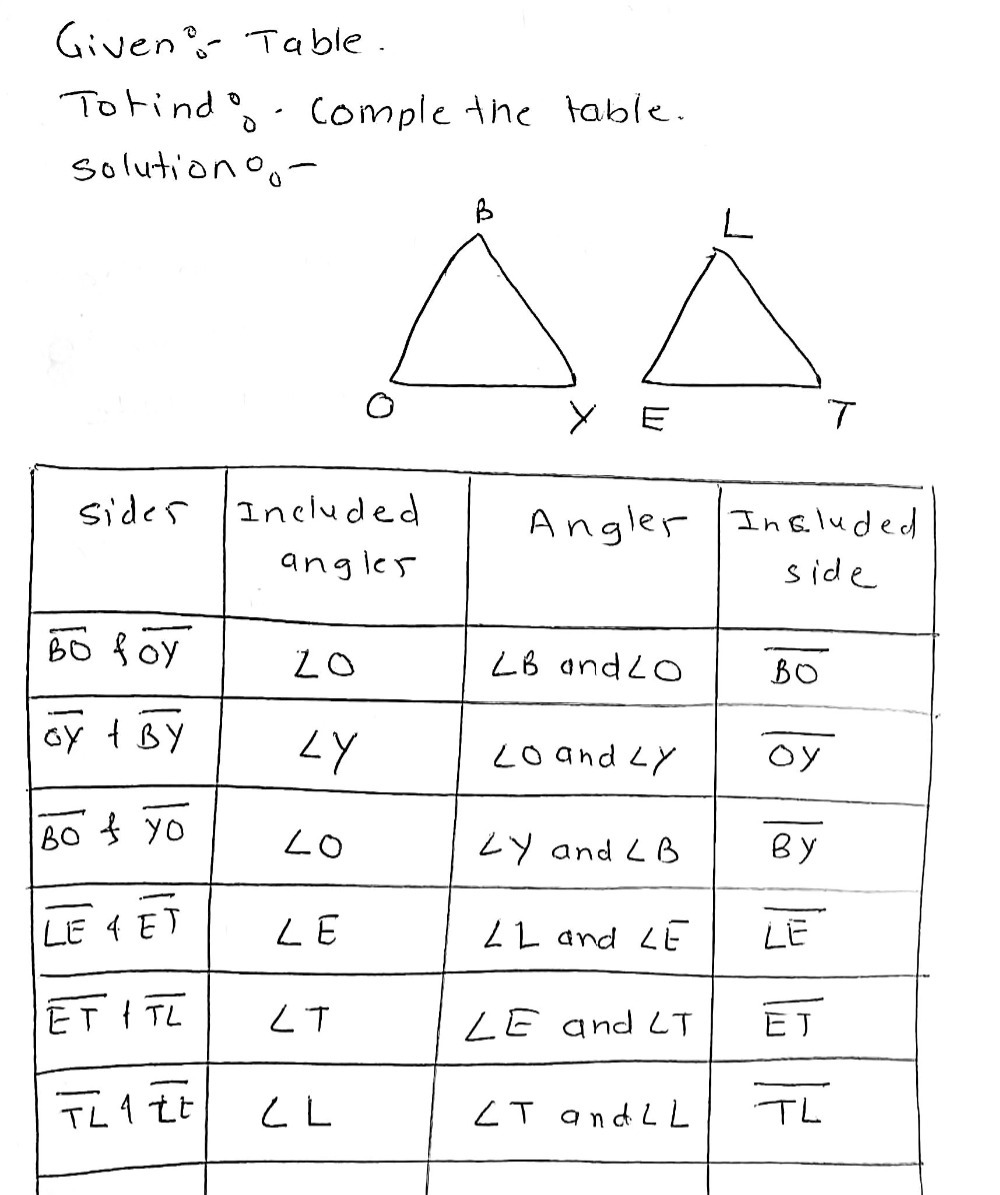 Given:- Table.
To find:- Comple the table.
solution:-
B
L
O
Y
E
T
sides
Included angles
Angles
Included side
BO & OY
∠O
∠B and ∠O
BO
OY & BY
∠Y
∠O and ∠Y
OY
BO & YO
∠O
∠Y and ∠B
BY
LE & ET
∠E
∠L and ∠E
LE
ET & TL
∠T
∠E and ∠T
ET
TL &
∠L
∠T and ∠L
TL